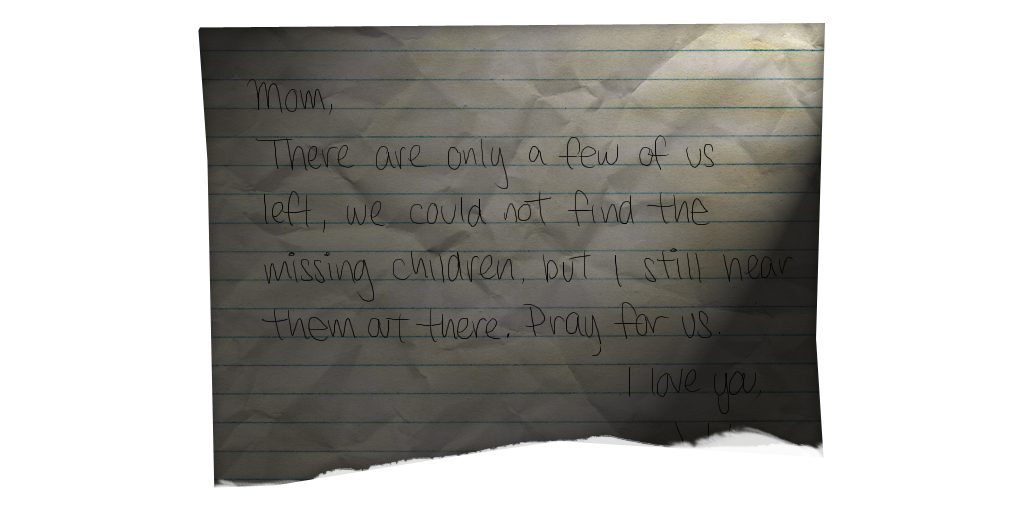 Mom,
There are only a few of us
left, we could not find the
missing children, but I still hear
them out there. Pray for us.
I love you,